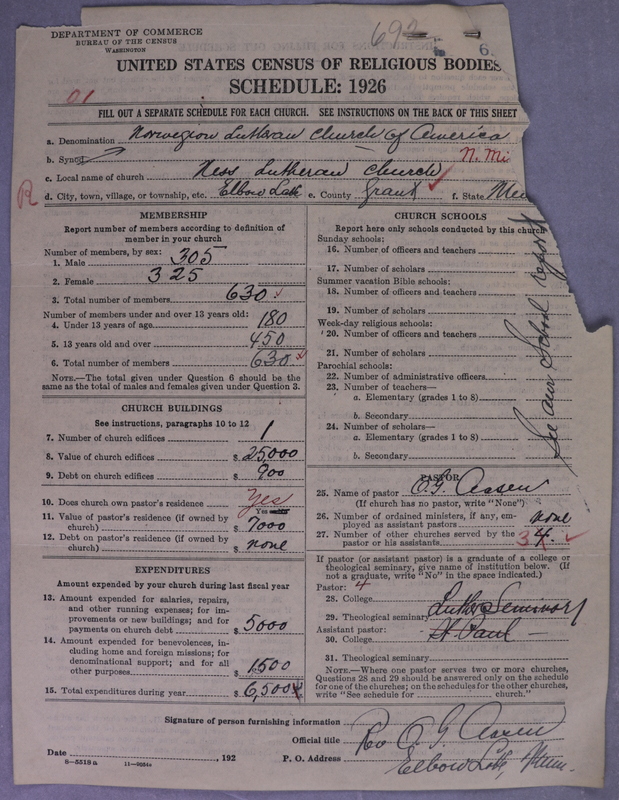 DEPARTMENT OF COMMERCE
BUREAU OF THE CENSUS
WASHINGTON
692
6
UNITED STATES CENSUS OF RELIGIOUS BODIES
SCHEDULE: 1926
01
FILL OUT A SEPARATE SCHEDULE FOR EACH CHURCH. SEE INSTRUCTIONS ON THE BACK OF THIS SHEET
a. Denomination Norwegian Lutheran Church of America
b. Synod
N. Mi
c. Local name of church Ness Lutheran Church
R
d. City, town, village, or township, etc. Elbow Lake e. County Grant f. State
MEMBERSHIP
Report number of members according to definition of
member in your church
Number of members, by sex:
1. Male 305
2. Female 325
3. Total number of members 630
Number of members under and over 13 years old:
4. Under 13 years of age 180
5. 13 years old and over 450
6. Total number of members 630
NOTE.—The total given under Question 6 should be
same as the total of males and females given under Question 3.
CHURCH BUILDINGS
See instructions, paragraphs 10 to 12
7. Number of church edifices 1
8. Value of church edifices $ 25,000
9. Debt on church edifices $ 900
10. Does church own pastor's residence Yes
Yes
11. Value of pastor's residence (if owned by
church) $ 7000
12. Debt on pastor's residence (if owned by
church) $ none
EXPENDITURES
Amount expended by your church during last fiscal year
13. Amount expended for salaries, repairs,
and other running expenses; for im-
provements or new buildings; and for
payments on church debt $ 5000
14. Amount expended for benevolences, in-
cluding home and foreign missions; for
denominational support; and for all
other purposes $ 1,500
15. Total expenditures during year $ 6,500
CHURCH SCHOOLS
Report here only schools conducted by this church
Sunday schools:
16. Number of officers and teachers
17. Number of scholars
Summer vacation Bible schools:
18. Number of officers and teachers
19. Number of scholars
Week-day religious schools:
20. Number of officers and teachers
21. Number of scholars
Parochial schools:
22. Number of administrative officers
23. Number of teachers—
a. Elementary (grades 1 to 8)
b. Secondary
24. Number of scholars—
a. Elementary (grades 1 to 8)
b. Secondary
See our School report
PASTOR
25. Name of pastor O. G. Aasen
(If church has no pastor, write "None")
26. Number of ordained ministers, if any, em-
ployed as assistant pastors none
27. Number of other churches served by the
pastor or his assistants 3 4
If pastor (or assistant pastor) is a graduate of a college or
theological seminary, give name of institution below. (If
not a graduate, write "No" in the space indicated.)
Pastor: 4
28. College
29. Theological seminary Luther Seminary
Assistant pastor: St. Paul
30. College
31. Theological seminary
NOTE.—Where one pastor serves two or more churches,
Questions 28 and 29 should be answered only on the schedule
for one of the churches; on the schedules for the other churches,
write "See schedule for church."
Signature of person furnishing information
Official title Rev O. G. Aasen
Date , 192 P. O. Address Elbow Lake, Minn.
8-5518 a